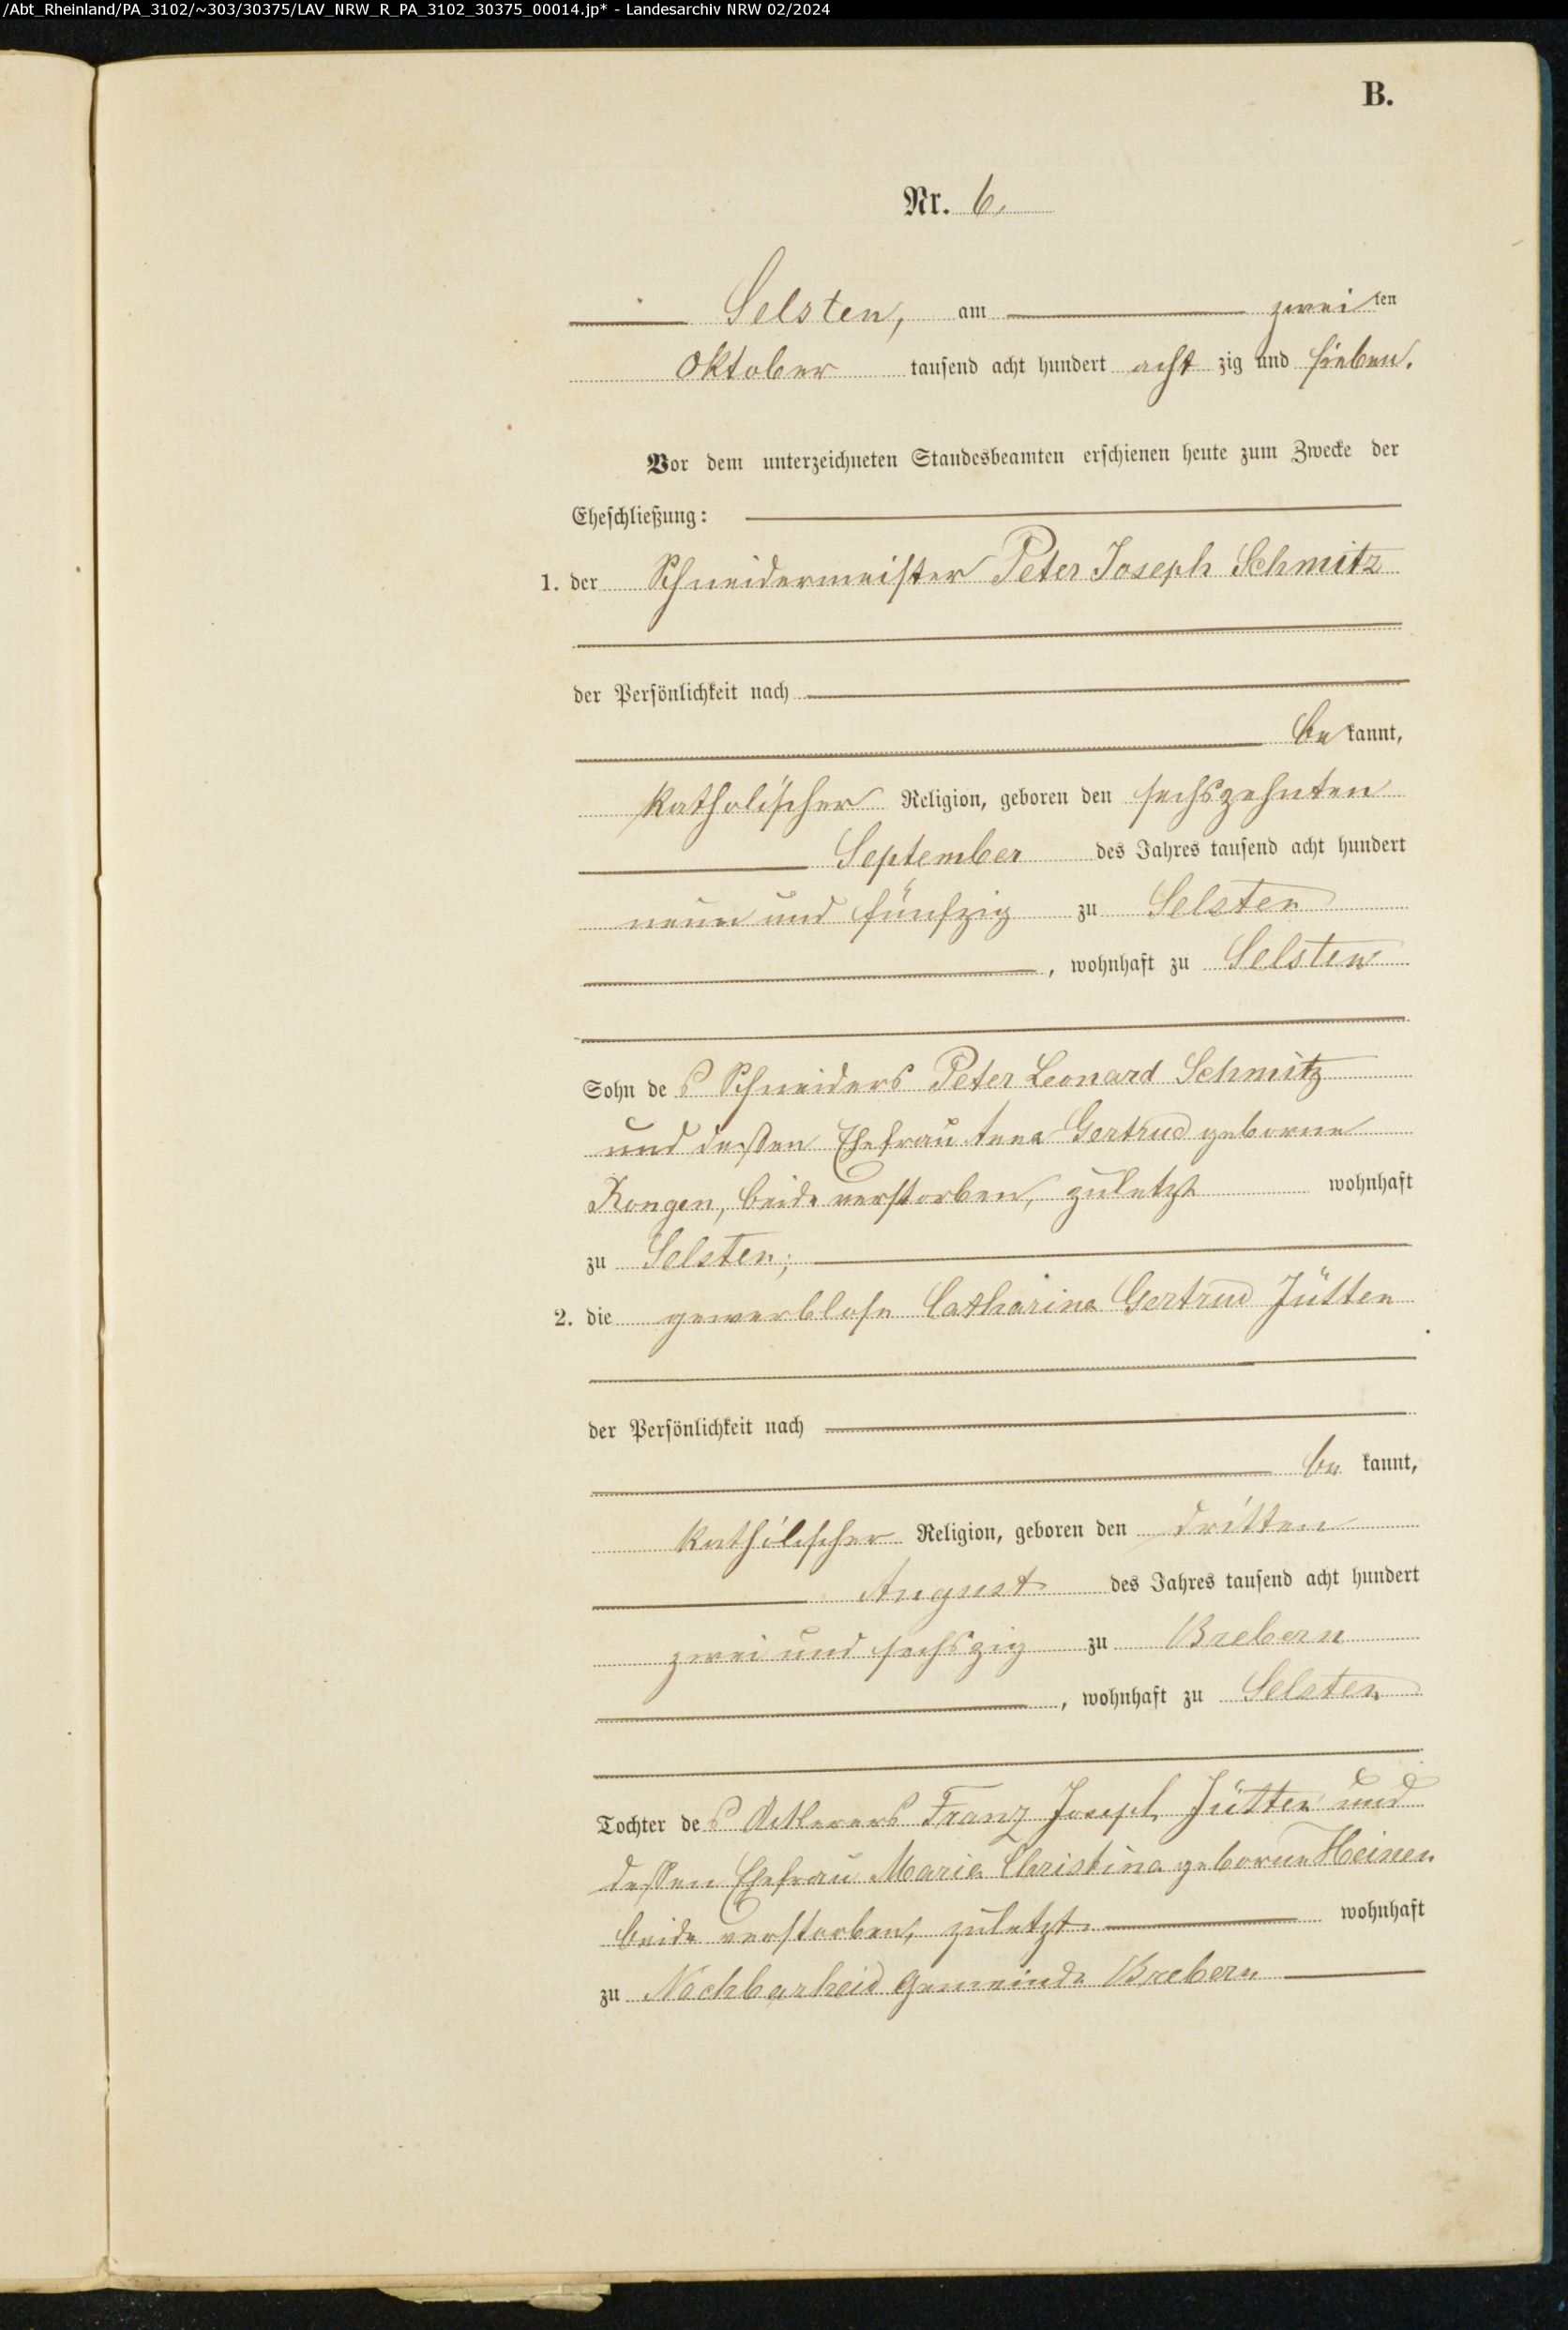 /Abt_Rheinland/PA_3102/~303/30375/LAV_NRW_R_PA_3102_30375_00014.jp* - Landesarchiv NRW 02/2024
B.
Nr. 6.
Selsten, am zweiten
Oktober tausend acht hundert acht zig und sieben.
Vor dem unterzeichneten Standesbeamten erschienen heute zum Zwecke der
Eheschließung:
1. der Schneidermeister Peter Joseph Schmitz
der Persönlichkeit nach
be kannt,
katholischer Religion, geboren den sechszehnten
September des Jahres tausend acht hundert
neun und fünfzig zu Selsten
, wohnhaft zu Selsten
Sohn des Schneiders Peter Leonard Schmitz
und dessen Ehefrau Anna Gertrud geborne
Rongen, beide verstorben, zuletzt wohnhaft
zu Selsten;
2. die gewerblose Catharina Gertrud Jütten
der Persönlichkeit nach
be kannt,
katholischer Religion, geboren den dritten
August des Jahres tausend acht hundert
zwei und sechszig zu Brebern
, wohnhaft zu Selsten
Tochter des Ackerers Franz Joseph Jütten und
dessen Ehefrau Maria Christina geborne Heinen
beide verstorben, zuletzt wohnhaft
zu Nachbarheid Gemeinde Brebern